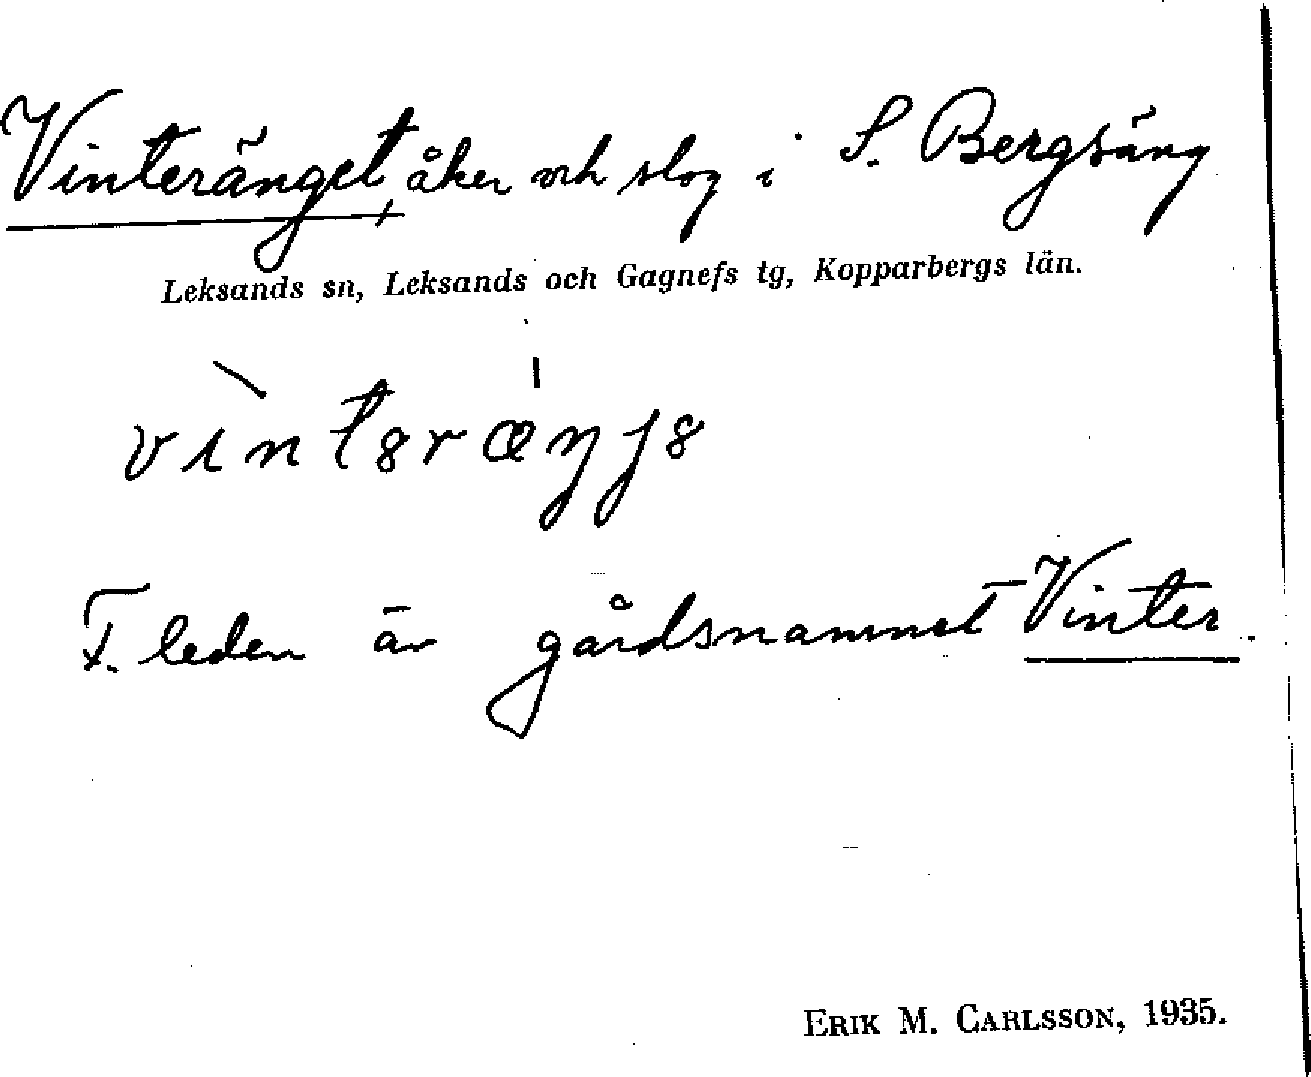 Vinteränget, åker och slog i S. Bergsäng
Leksands sn, Leksands och Gagnefs tg, Kopparbergs län.
vìntərǽŋjə
F. leden är gårdsnamnet Vinter.
ERIK M. CARLSSON, 1935.